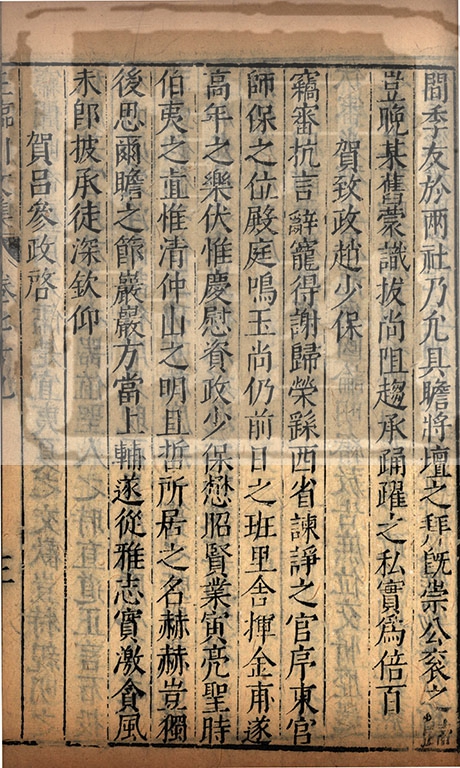 間季友於兩社乃允具瞻將壇之拜旣崇公衮之
豈晚某舊蒙識拔尚阻趨承踊躍之私實爲倍百
賀致政趙少保
竊審抗言辭寵得謝歸榮繇西省諫諍之官序東宮
師保之位殿庭鳴玉尚仍前日之班里舍揮金甫遂
高年之樂伏惟慶慰資政少保懋昭賢業寅亮聖時
伯夷之直惟清仲山之明且哲所居之名赫赫豈獨
後思爾瞻之節巖巖方當上輔遂從雅志實激貪風
未卽披承徒深欽仰
賀呂參政啓
王臨川文集 卷七十九